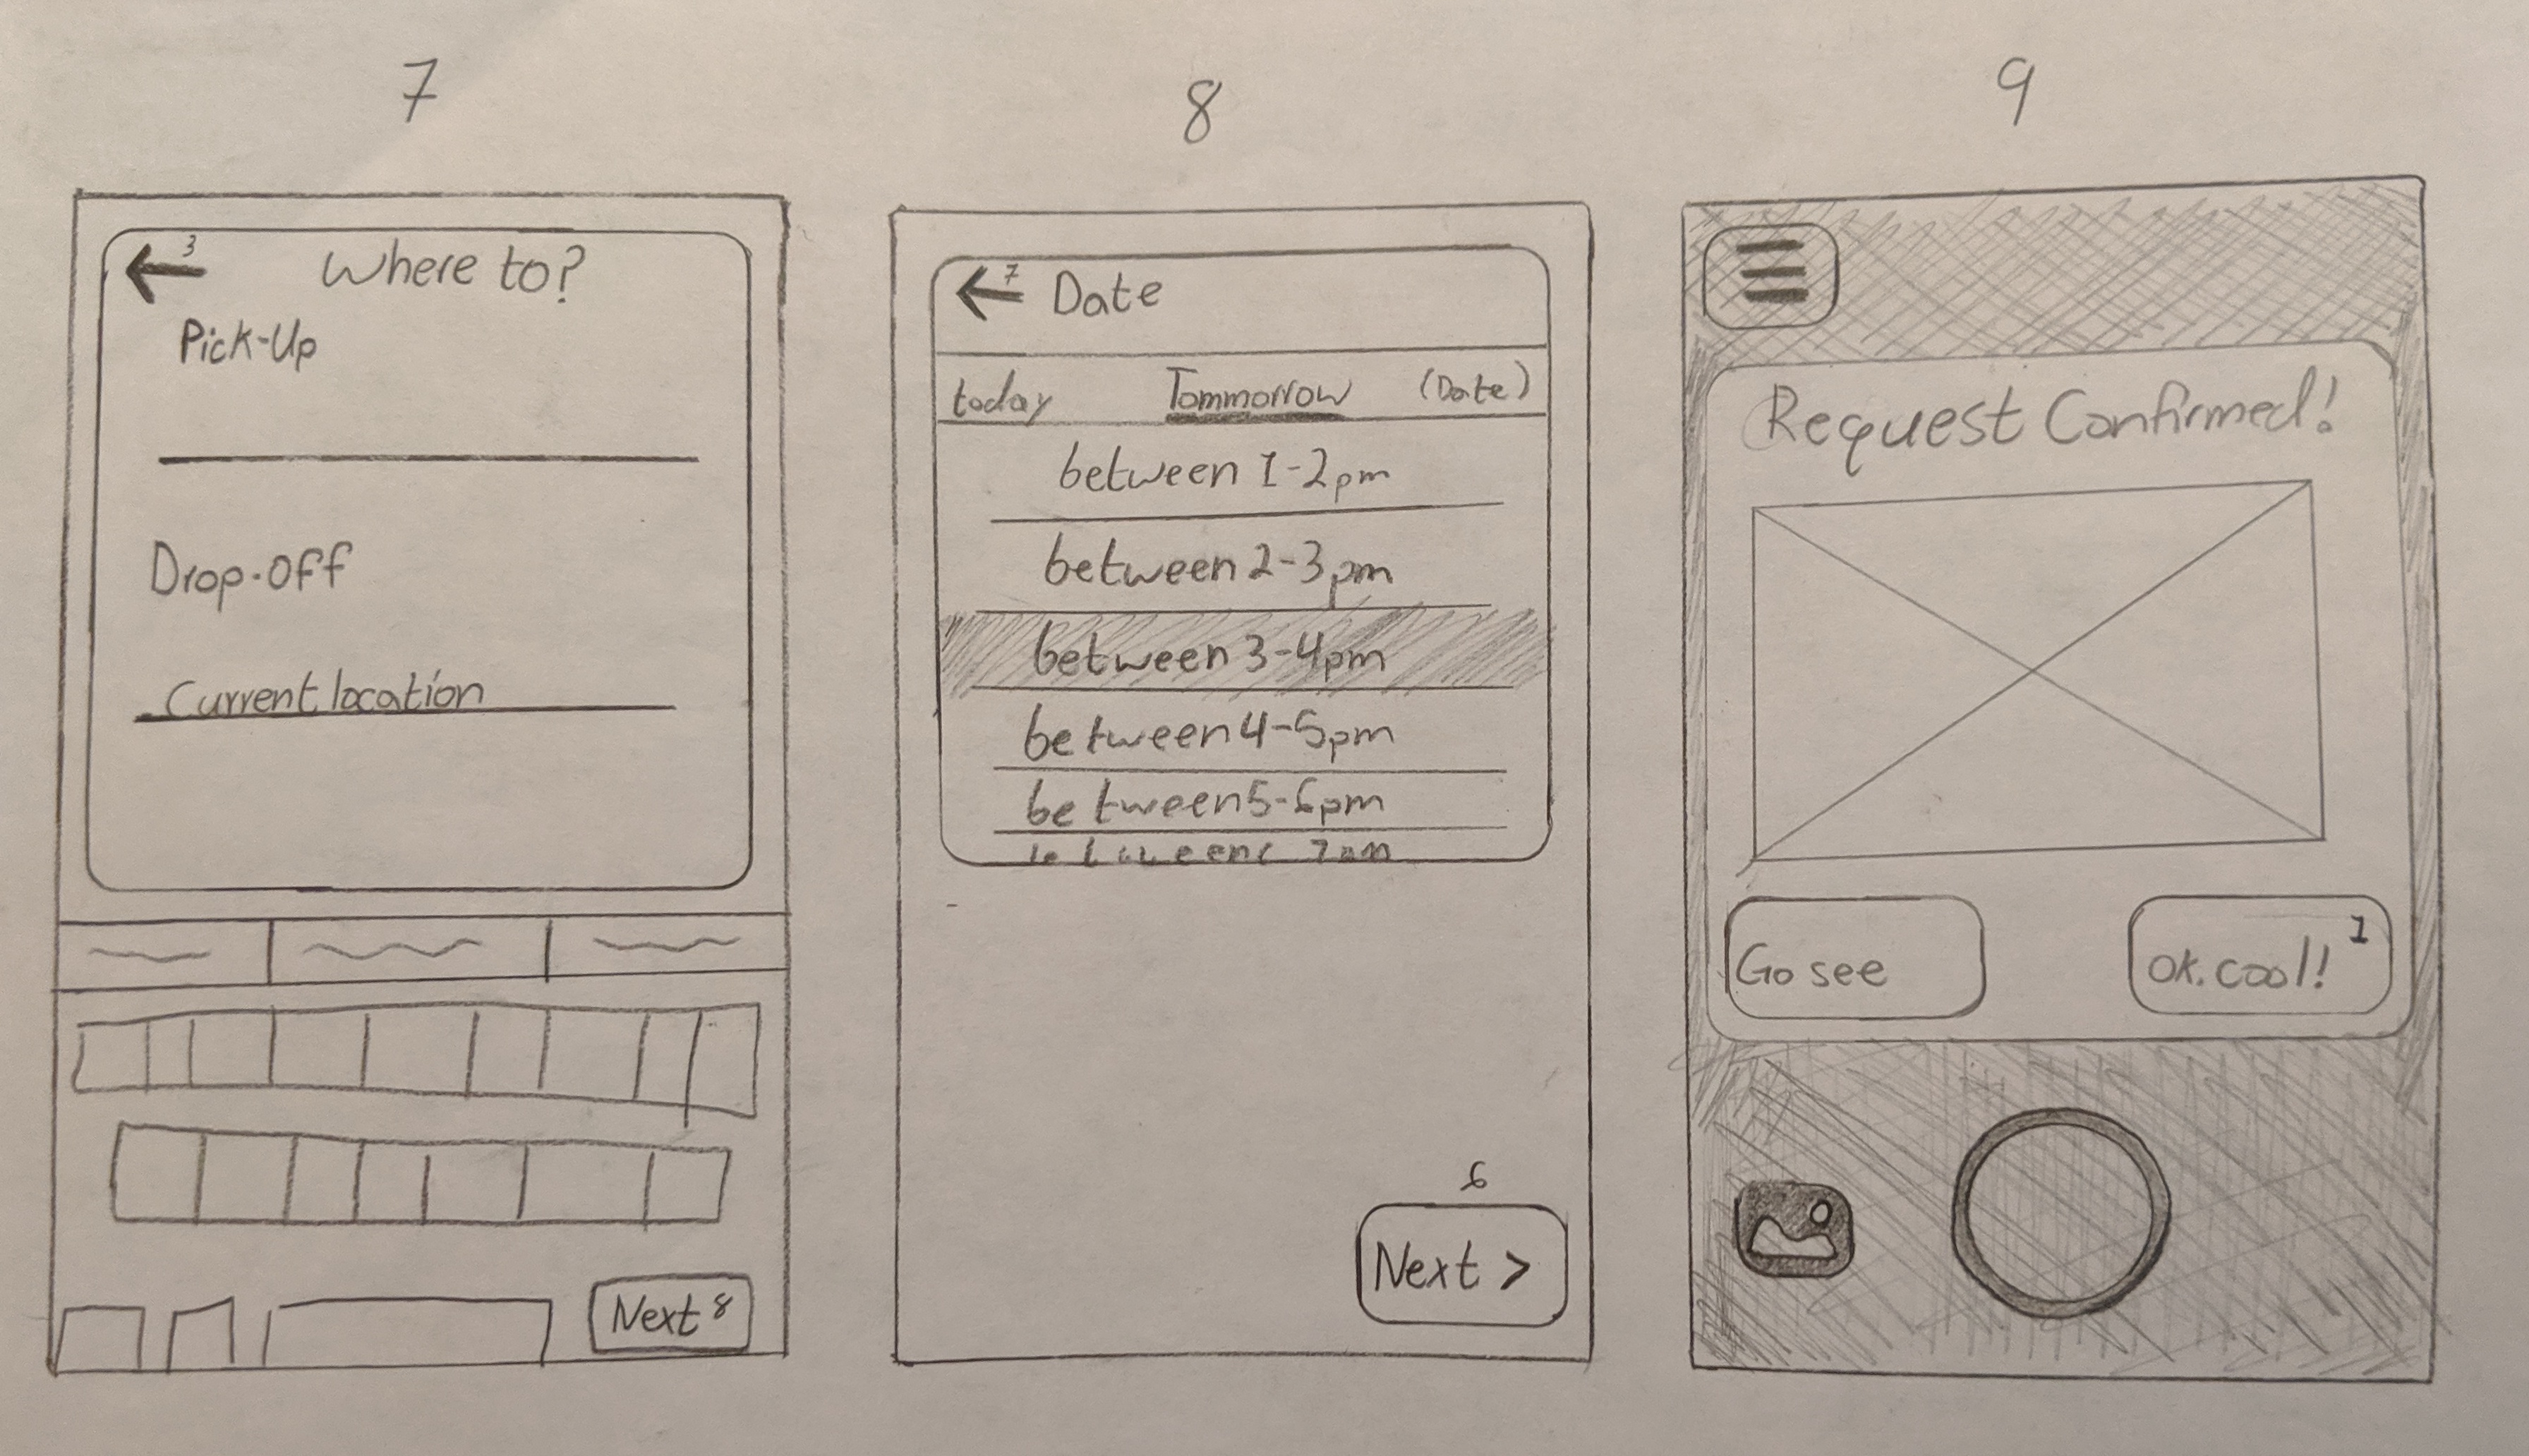 7
3
Where to?
Pick-Up
Drop-off
Current location
Next 8
8
7
Date
today Tommorrow (Date)
between 1-2pm
between 2-3pm
between 3-4pm
between 4-5pm
between 5-6pm
6
Next >
9
Request Confirmed!
Go see
OK. cool! 1